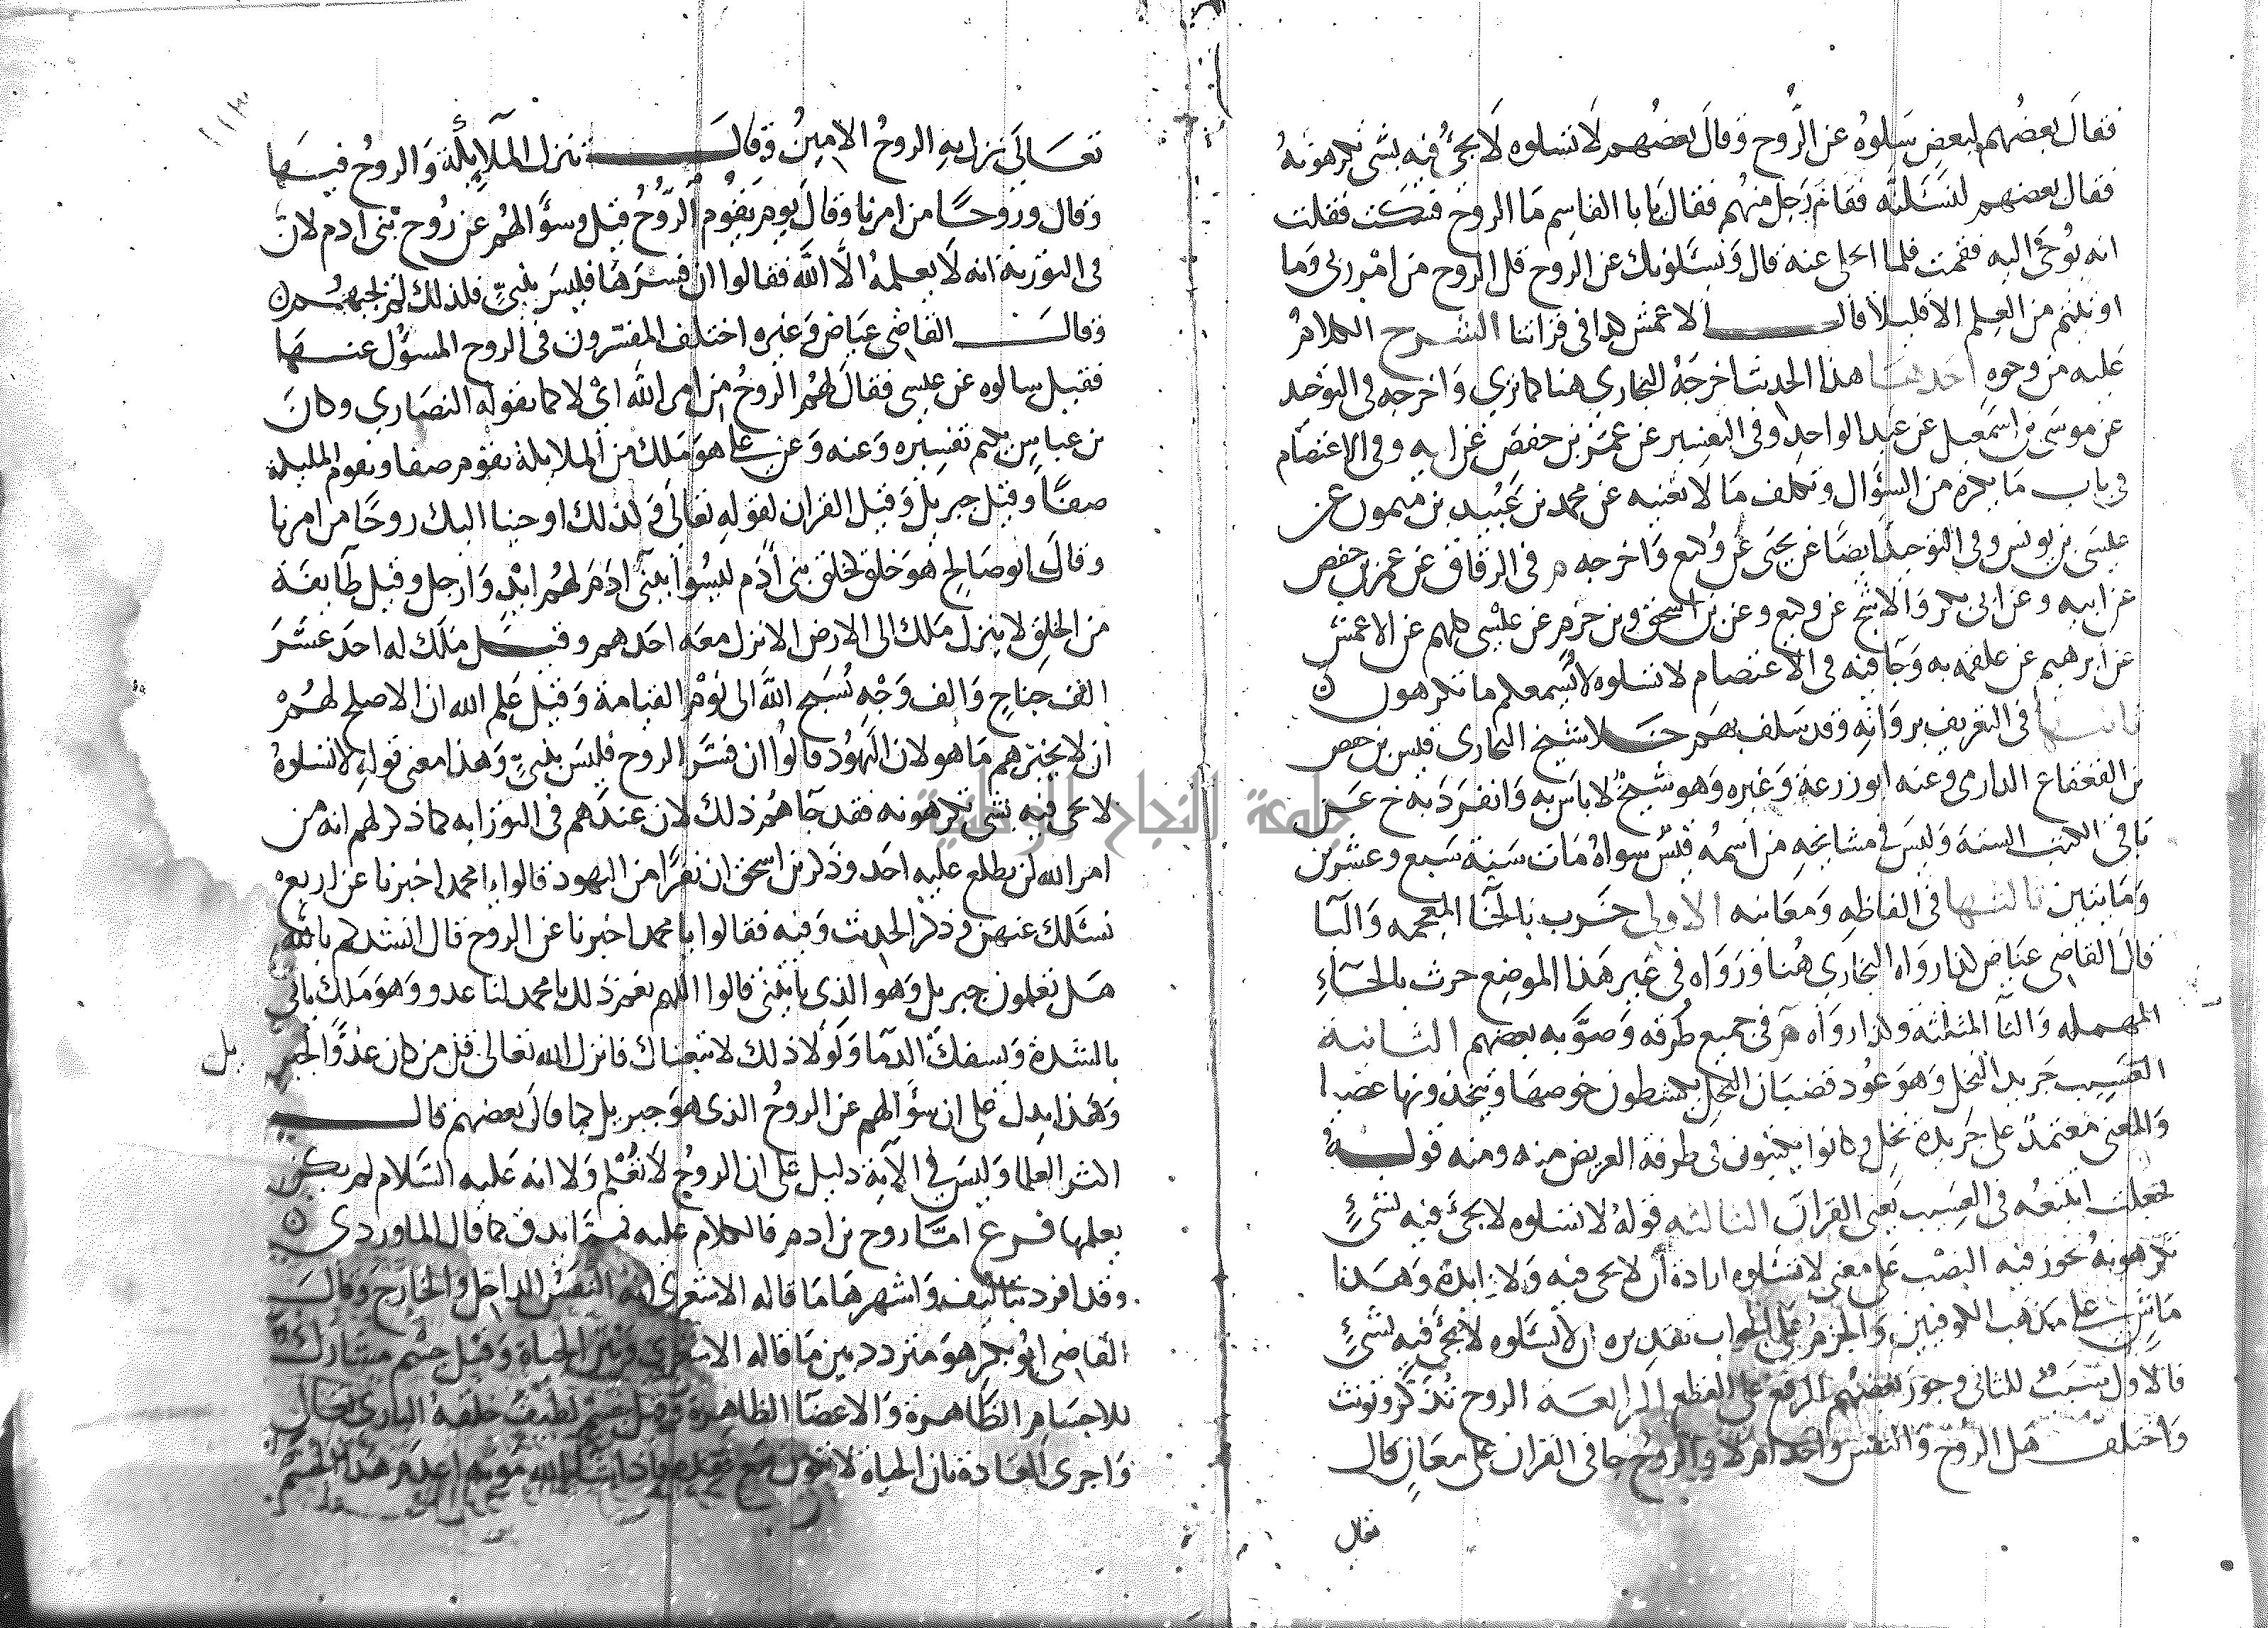 فقال بعضهم لبعض سلوه عن الروح وقال بعضهم لا تسلوه لا يجئ فيه بشى تكرهونه
فقال بعضهم لنسئلنه فقام رجل منهم فقال يا با القاسم ما الروح فسكت فقلت
انه يوحى اليه فقمت فلما انجلى عنه قال ويسئلونك عن الروح قل الروح من امر ربى وما
اوتيتم من العلم الا قليلا قال الاعمش كذا فى قراتنا الشرح الكلام
عليه من وجوه احدها هذا الحديث اخرجه البخارى هنا كما ترى واخرجه فى التوحيد
عن موسى بن اسمعيل عن عبد الواحد وفى التفسير عن عمر بن حفص عن ابيه وفى الاعتصام
فى باب ما يكره من السؤال وتكلف ما لا يعنيه عن محمد بن عبيد بن ميمون عن
عيسى بن يونس وفى التوحيد ايضا عن يحيى عن وكيع واخرجه م فى الرقاق عن عمر بن حفص
عن ابيه وعن ابى بكر والاشج عن وكيع وعن بن اسحق وبن خرم عن عيسى كلهم عن الاعمش
عن ابرهيم عن علقمه به وجا فيه فى الاعتصام لا تسلوه لا يسمعكم ما تكرهون
ثانيها فى التعريف برواته وقد سلف بهم خلا شيخ البخارى قيس بن حفص
بن القعقاع الدارى وعنه ابو زرعة وغيره وهو شيخ لا باس به وانفرد به خ عن
باقى الكتب الستة وليس فى مشايخه من اسمه قيس سواه مات سنة سبع وعشرين
ومايتين ثالثها فى الفاظه ومعانيه الاولى خرب بالخا المعجمه والبا
قال القاضى عياض كذا رواه البخارى هنا ورواه فى غير هذا الموضع حرث بالحاء
المهمله والثا المثلثة وكذا رواه م فى جميع طرقه وصوبه بعضهم الثانية
العسيب جريد النخل وهو عود قضبان النخل يكشطون خوصها ويتخذونها عصيا
والمعنى معتمد على جريدة نخل وكانوا يكتبون فى طرفه العريض منه ومنه قوله
فجعلت اتتبعه فى العسيب يعنى القران الثالثه قوله لا تسلوه لا يجئ فيه بشئ
تكرهونه يجوز فيه النصب على معنى لا تسلوه ارادة ان لا يجى فيه ولا زايدة وهذا
ماش على مذهب الكوفيين والجزم على الجواب تقديره ان لا تسلوه لا يجئ فيه بشئ
فالاول سبب للثانى وجوز بعضهم الرفع على القطع الرابعة الروح تذكر وتونث
واختلف هل الروح والنفس واحد ام لا والروح جا فى القران على معان قال
تعال
١١٣
تعالى نزل به الروح الامين وقال تنزل الملايكة والروح فيها
وقال وروحا من امرنا وقال يوم يقوم الروح قيل وسؤالهم عن روح بنى ادم لان
فى التورية انه لا يعلمه الا الله فقالوا ان فسرها فليس بنبى فلذلك لم يجبهم
وقال القاضى عياض وغيره اختلف المفسرون فى الروح المسؤل عنها
فقيل سالوه عن عيسى فقال لهم الروح من امر الله اى لا كما يقوله النصارى وكان
بن عباس يكتم تفسيره وعنه وعن على هو ملك من الملايكة يقوم صفا وتقوم المليكة
صفا وقيل جبريل وقيل القران لقوله تعالى وكذلك اوحينا اليك روحا من امرنا
وقال ابو صالح هو خلق كخلق بنى آدم ليسوا ببنى ادم لهم ايد وارجل وقيل طآيفة
من الخلق لا ينزل ملك الى الارض الا نزل معه احدهم وقيل ملك له احد عشر
الف جناح والف وجه يسبح الله الى يوم القيامة وقيل علم الله ان الاصلح لهم
ان لا يخبرهم ما هو لان اليهود قالوا ان فسر الروح فليس بنبى وهذا معنى قوله لا تسلوه
لا يجى فيه بشى تكرهونه فقد جآهم ذلك لان عندهم فى التوراية كما ذكر لهم انه من
امر الله لن يطلع عليه احد وذكر بن اسحق ان نفرا من اليهود قالوا يا محمد اخبرنا عن اربع
نسئلك عنهن وذكر الحديث وفيه فقالوا يا محمد اخبرنا عن الروح قال انشدكم بالله
هل تعلمون جبريل وهو الذى ياتينى قالوا اللهم نعم ذلك يا محمد لنا عدو وهو ملك ياتى
بالشدة ويسفك الدما ولولا ذلك لاتبعناك فانزل الله تعالى قل من كان عدوا لجبر
يل
وهذا يدل على ان سؤالهم عن الروح الذى هو جبريل كما قال بعضهم قال
اكثر العلما وليس فى الآية دليل على ان الروح لا تعلم ولا انه عليه السلام لم يكن
يعلمها فرع اما روح بن ادم فالكلام عليه مما يدق كما قال الماوردى
وقد افرد بتاليف واشهرها ما قاله الاشعرى انه النفس الداخل والخارج وقال
القاضى ابو بكر هو متردد بين ما قاله الاشعرى وبين الحياة وقيل جسم مشارك
للاجسام الظاهرة والاعضا الظاهرة وقيل جسم لطيف خلقه البارى تعالى
واجرى العادة بان الحياة لا تكون مع فقده فاذا شا الله موته اعدم هذا الجسم
جامعة النجاح الوطنية